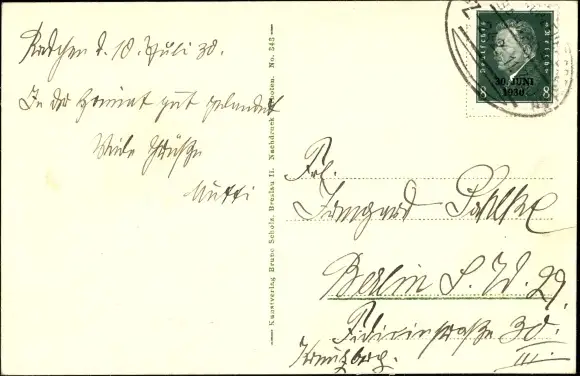 d. 10. Juli 30.
In der Heimat gut gelandet
Viele Grüße
Mutti
Kunstverlag Bruno Scholz, Breslau II. Nachdruck verboten. No. 343
Deutsches Reich
30. JUNI
1930
8 8
Frl.
Irmgard
Berlin S. W. 29.
Fidicinstraße 30.
Kreuzberg. III.